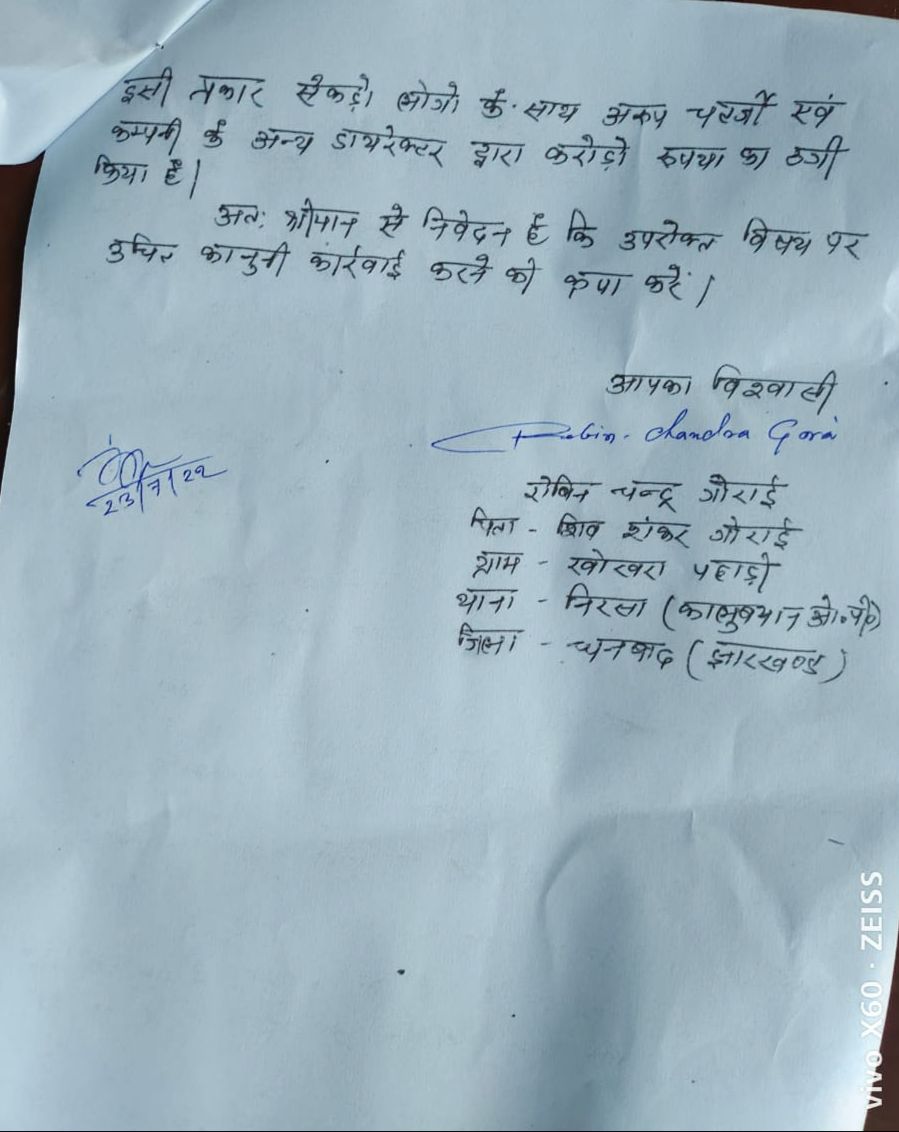 इसी प्रकार सैकड़ो लोगो के साथ अरूप चटर्जी एवं
कम्पनी के अन्य डायरेक्टर द्वारा करोड़ो रुपया का ठगी
किया है।
अतः श्रीमान से निवेदन है कि उपरोक्त विषय पर
उचित कानुनी कार्रवाई करने की कृपा करें।
आपका विश्वासी
Rabin Chandra Gorai
रोबिन चन्द्र गोराई
23/7/22
पिता - शिव शंकर गोराई
ग्राम - खोखरा पहाड़ी
थाना - निरसा (कालुबथान ओ०पी०)
जिला - धनबाद (झारखण्ड)
vivo X60 · ZEISS